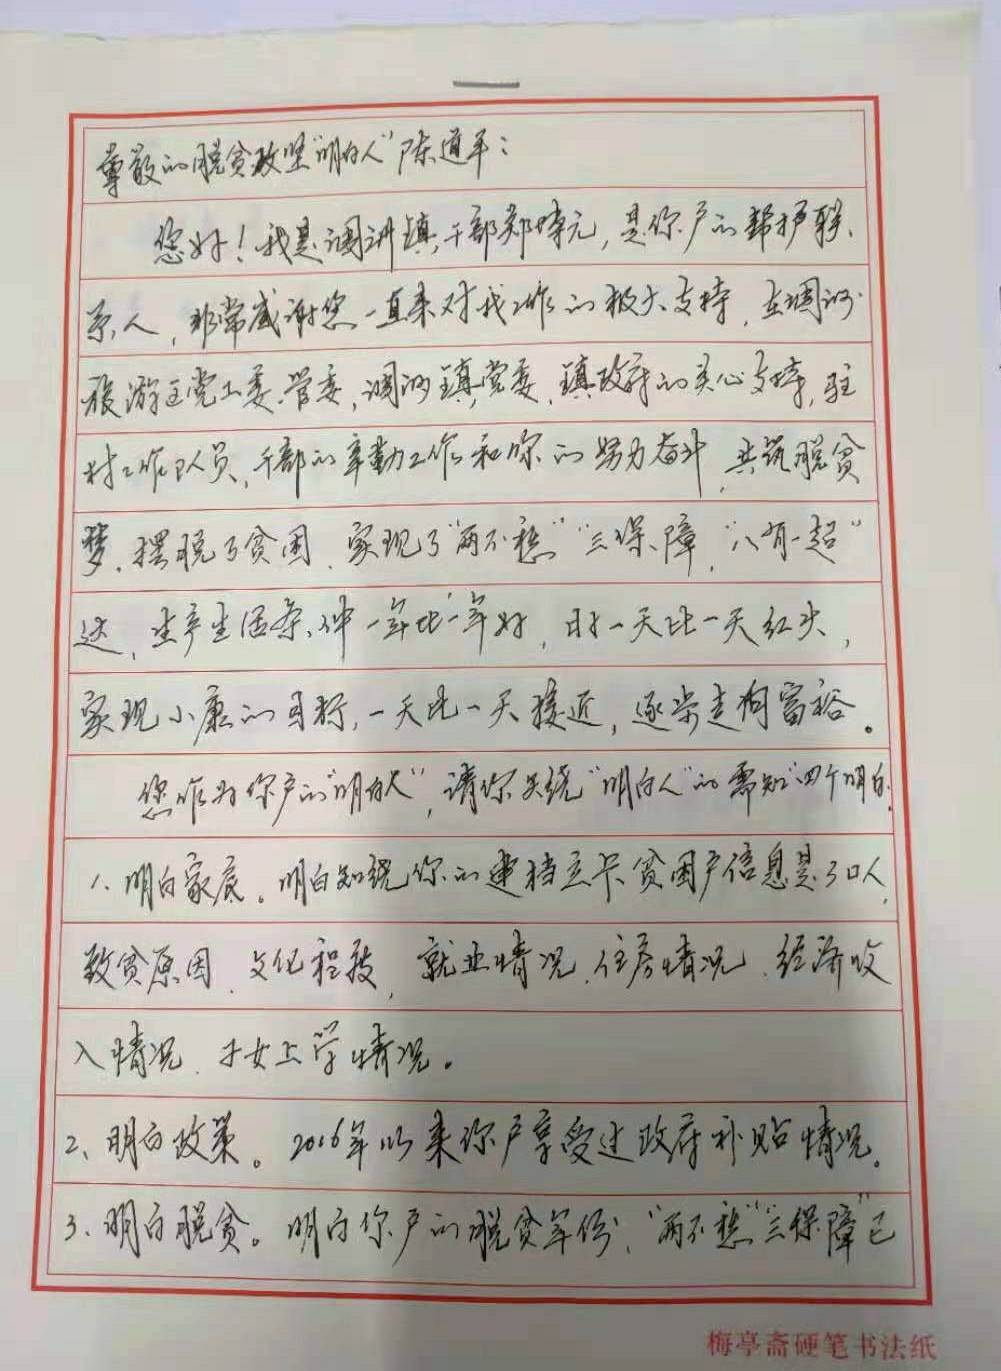 尊敬的脱贫攻坚“明白人”陈道平：
您好！我是调汛镇干部郑特元，是你户的帮护联
系人，非常感谢您一直来对我工作的极大支持，在调汛
旅游区党工委、管委，调汛镇党委、镇政府的关心支持，驻
村工作队员、干部的辛勤工作和你的努力奋斗，共筑脱贫
梦，摆脱了贫困，实现了“两不愁”“三保障”，“八有一超”
达，生产生活条件一年比一年好，日子一天比一天红火，
实现小康的目标，一天比一天接近，逐步走向富裕。
您作为你户的“明白人”，请你围绕“明白人”的需知“四个明白
1、明白家底。明白知晓你的建档立卡贫困户信息是3口人，
致贫原因、文化程度、就业情况、住房情况、经济收
入情况、子女上学情况。
2、明白政策。2016年以来你户享受过政府补贴情况。
3、明白脱贫。明白你户的脱贫年份，“两不愁”“三保障”已
梅亭斋硬笔书法纸